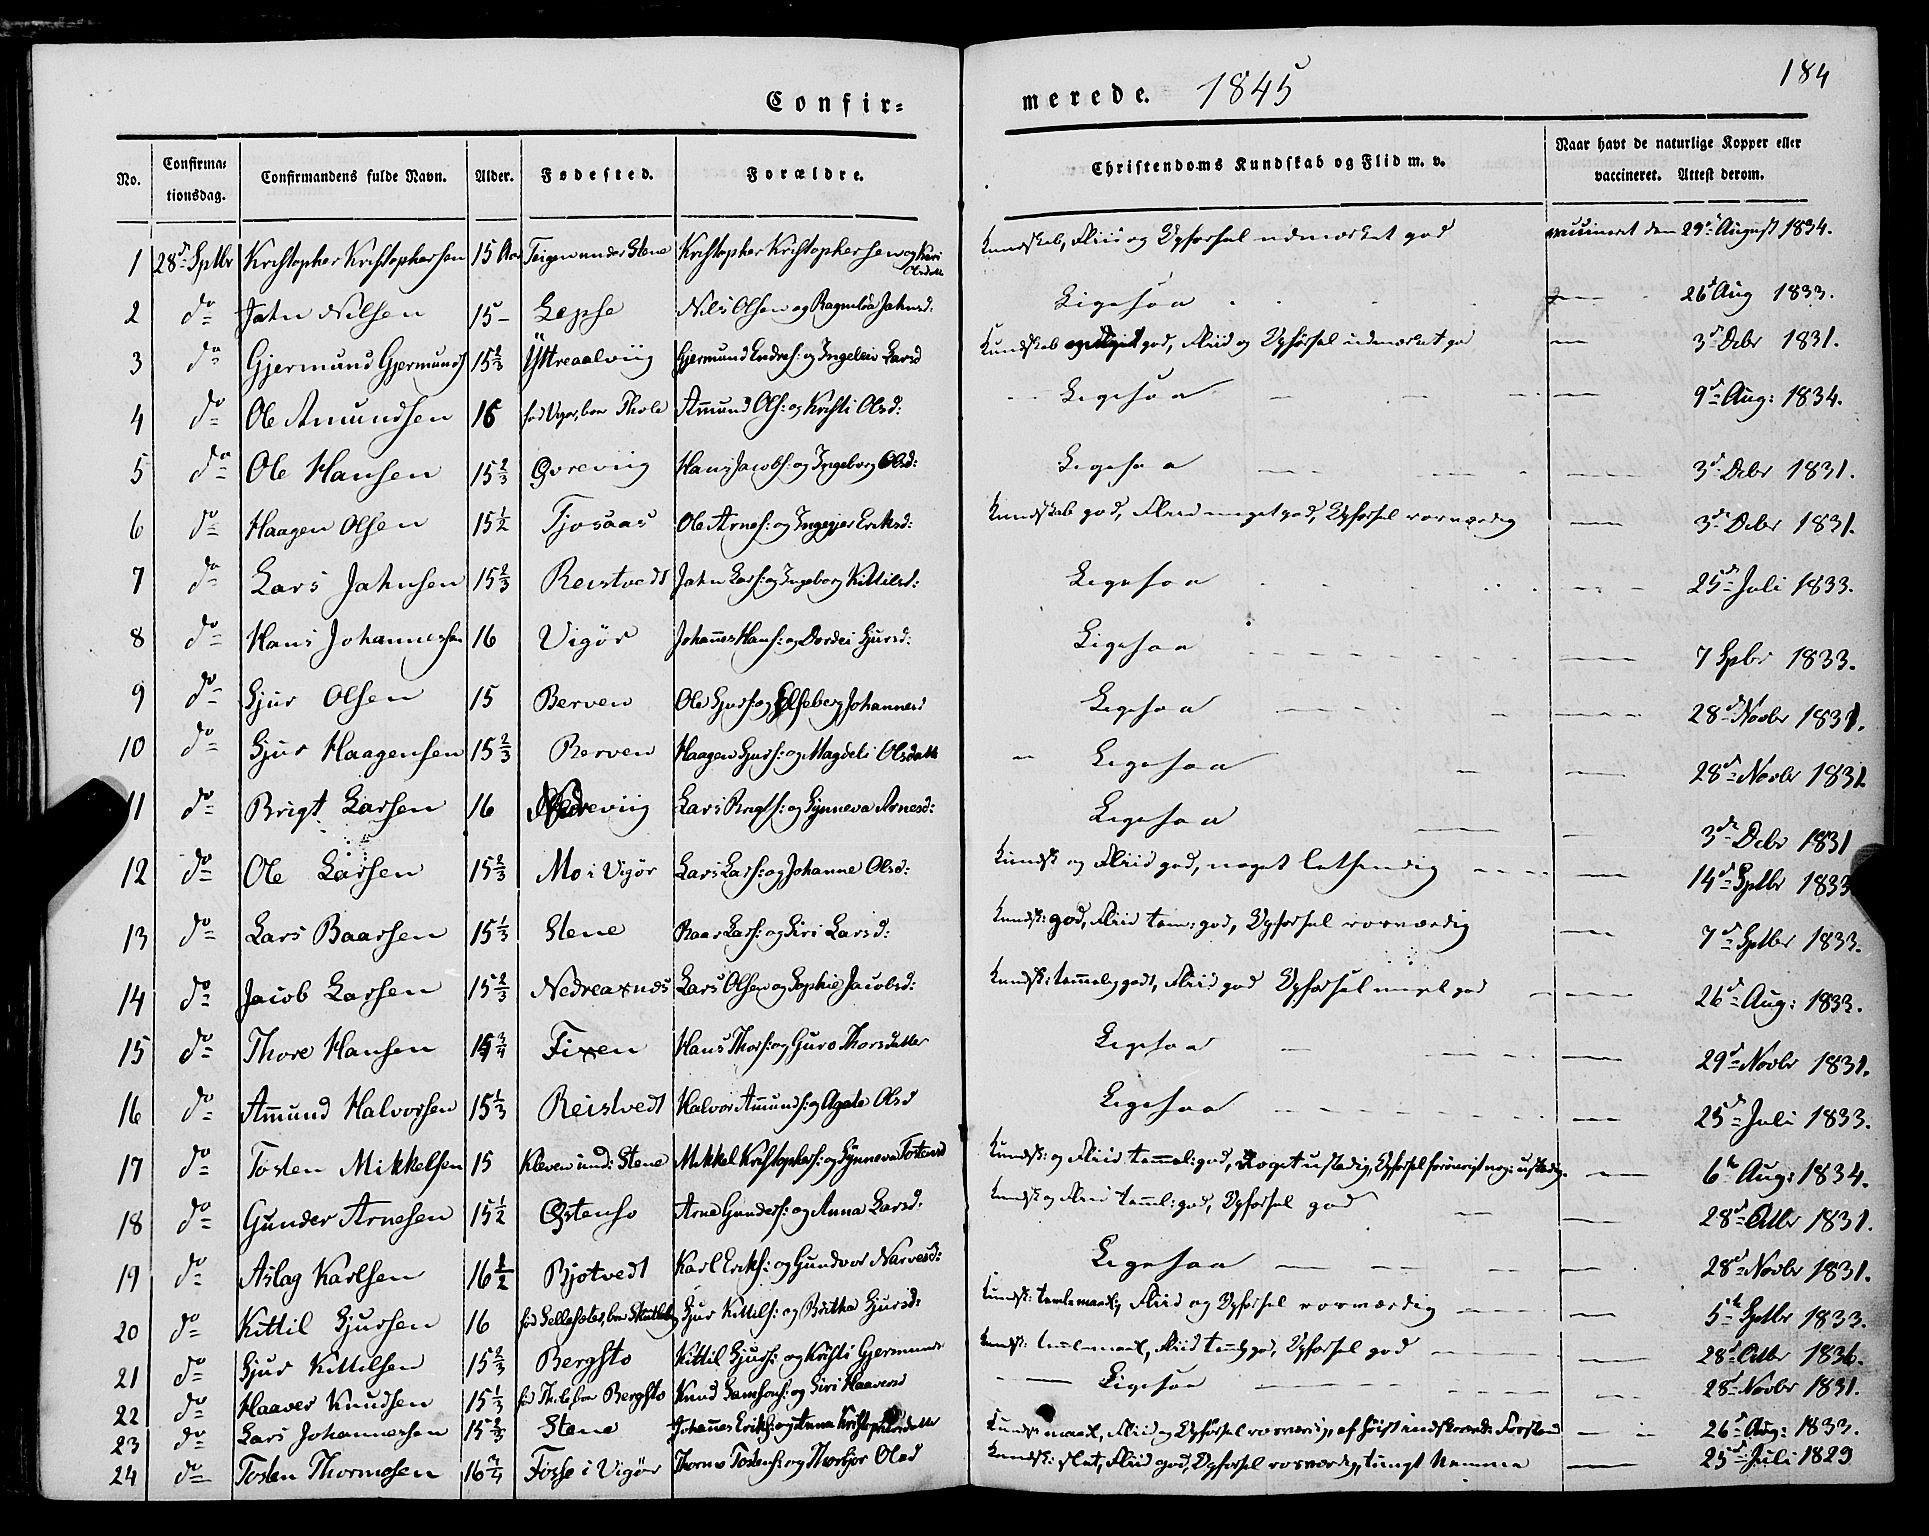 184
Confirmerede. 1845
No. Confirmationsdag. Confirmandens fulde Navn. Alder. Fødested. Forældre. Christendoms Kundskab og Flid m. v. Naar havt de naturlige Kopper eller vaccineret. Attest derom.
1 28d Sptbr Kristopher Kristophersen 15 Aar Teigen under Stene Kristopher Kristophersen og Kari Olsdatt Kundskab, Fliid og Opførsel udmærket god vaccineret den 29d August 1834.
2 do Jahn Nilsen 15 – Lepse Nils Olsen og Ragnilda Jahnsd: Ligesaa – 26d Aug 1833.
3 do Gjermund Gjermunds 15 2/3 Yttreaalviig Gjermund Endres: og Ingeleiv Larsd Kundskab meget god, Fliid og Opførsel udmærket go – 3d Debr 1831.
4 do Ole Amundsen 16 fød Vigør, boe Thole Amund Ols: og Kristi Olsd: Ligesaa – 9d Aug: 1834.
5 do Ole Hansen 15 2/3 Øvreviig Hans Jacobs: og Ingeborg Olsd: Ligesaa – 3d Debr 1831.
6 do Haagen Olsen 15 1/2 Tjosaas Ole Arnes: og Ingegjer Eriksd: Kundskab god, Fliid meget god, Opførsel rosværdig – 3d Debr 1831.
7 do Lars Jahnsen 15 2/3 Reistvedt Jahn Lars: og Ingeborg Kittilsd: Ligesaa – 25d Juli 1833.
8 do Hans Johannessen 16 Vigør Johannes Hans: og Dordei Sjursd: Ligesaa – 7 Spbr 1833.
9 do Sjur Olsen 15 Berven Ole Sjurs: og Elseberg Johannesd Ligesaa – 28d Novbr 1831.
10 do Sjur Haagensen 15 2/3 Berven Haagen Sjurs: og Magdeli Olsdatt Ligesaa – 28d Novbr 1831.
11 do Brigt Larsen 16 Nedreviig Lars Brigts: og Synneva Arnesd: Ligesaa – 3d Debr 1831
12 do Ole Larsen 15 2/3 Mo i Vigør Lars Lars: og Johanne Olsd: Kundsk og Fliid god, noget letsindig – 14d Sptbr 1833
13 do Lars Baarsen 15 1/3 Stene Baar Lars: og Siri Larsd: Kundsk: god, Fliid tem: god, Opførsel rosværdig – 7d Sptbr 1833.
14 do Jacob Larsen 15 2/3 Nedreaxnes Lars Olsen og Sophie Jacobsd: Kundsk: temmelig godt, Fliid god Opførsel meget god – 26d Aug: 1833.
15 do Thore Hansen 15 3/4 Fixen Hans Thors: og Guro Thorsdatter Ligesaa – 29d Novbr 1831.
16 do Amund Halvorsen 15 1/3 Reistvedt Halvor Amunds: og Agate Olsd Ligesaa – 25d Juli 1833.
17 do Tosten Mikkelsen 15 Kleven und: Stene Mikkel Kristophers: og Synneva Tostensd Kundsk: og Fliid temmel: god, noget ustadig, Opførsel forøvrigt nog: ustadig. – 6te Aug: 1834.
18 do Gunder Arnesen 15 1/2 Østensø Arne Gunders: og Anna Larsd: Kundsk og Fliid temml: god, Opførsel god – 28d Octbr 1831.
19 do Aslag Karlsen 16 1/2 Bjotvedt Karl Eriks: og Gundvor Narvesd: Ligesaa – 28d Novbr 1831.
20 do Kittil Sjursen 16 fød Sellesæter, boe Sjur Kittils: og Britha Sjursd: Kundsk: temlemaadl, Fliid og Opførsel rosværdig – 5te Sptbr 1833.
21 do Sjur Kittilsen 15 2/3 Bergstø Kittil Sjurs: og Kristi Gjermunds Kundsk: maadl, Fliid temlig god, Opførsel god – 28d Octbr
22 do Haaver Knudsen 15 1/3 fød Thole, boe Bergstø Knud Samsons: og Siri Haaversd Ligesaa – 28d Novbr 1831.
23 do Lars Johannessen 15 2/3 Stene Johannes Eriks: og Anna Kristophersdatter Kundsk maadl, Fliid og Opførsel rosværdig, af høist indskrænkt Forstand – 26d Aug: 1833.
24 do Tosten Thormosen 16 3/4 Fosse i Vigør Thormo Tostens: og Thorbjor Olsd Kundsk: slet, Fliid god, Opførsel rosværdig, tungt Nemme – 25d Juli 1829